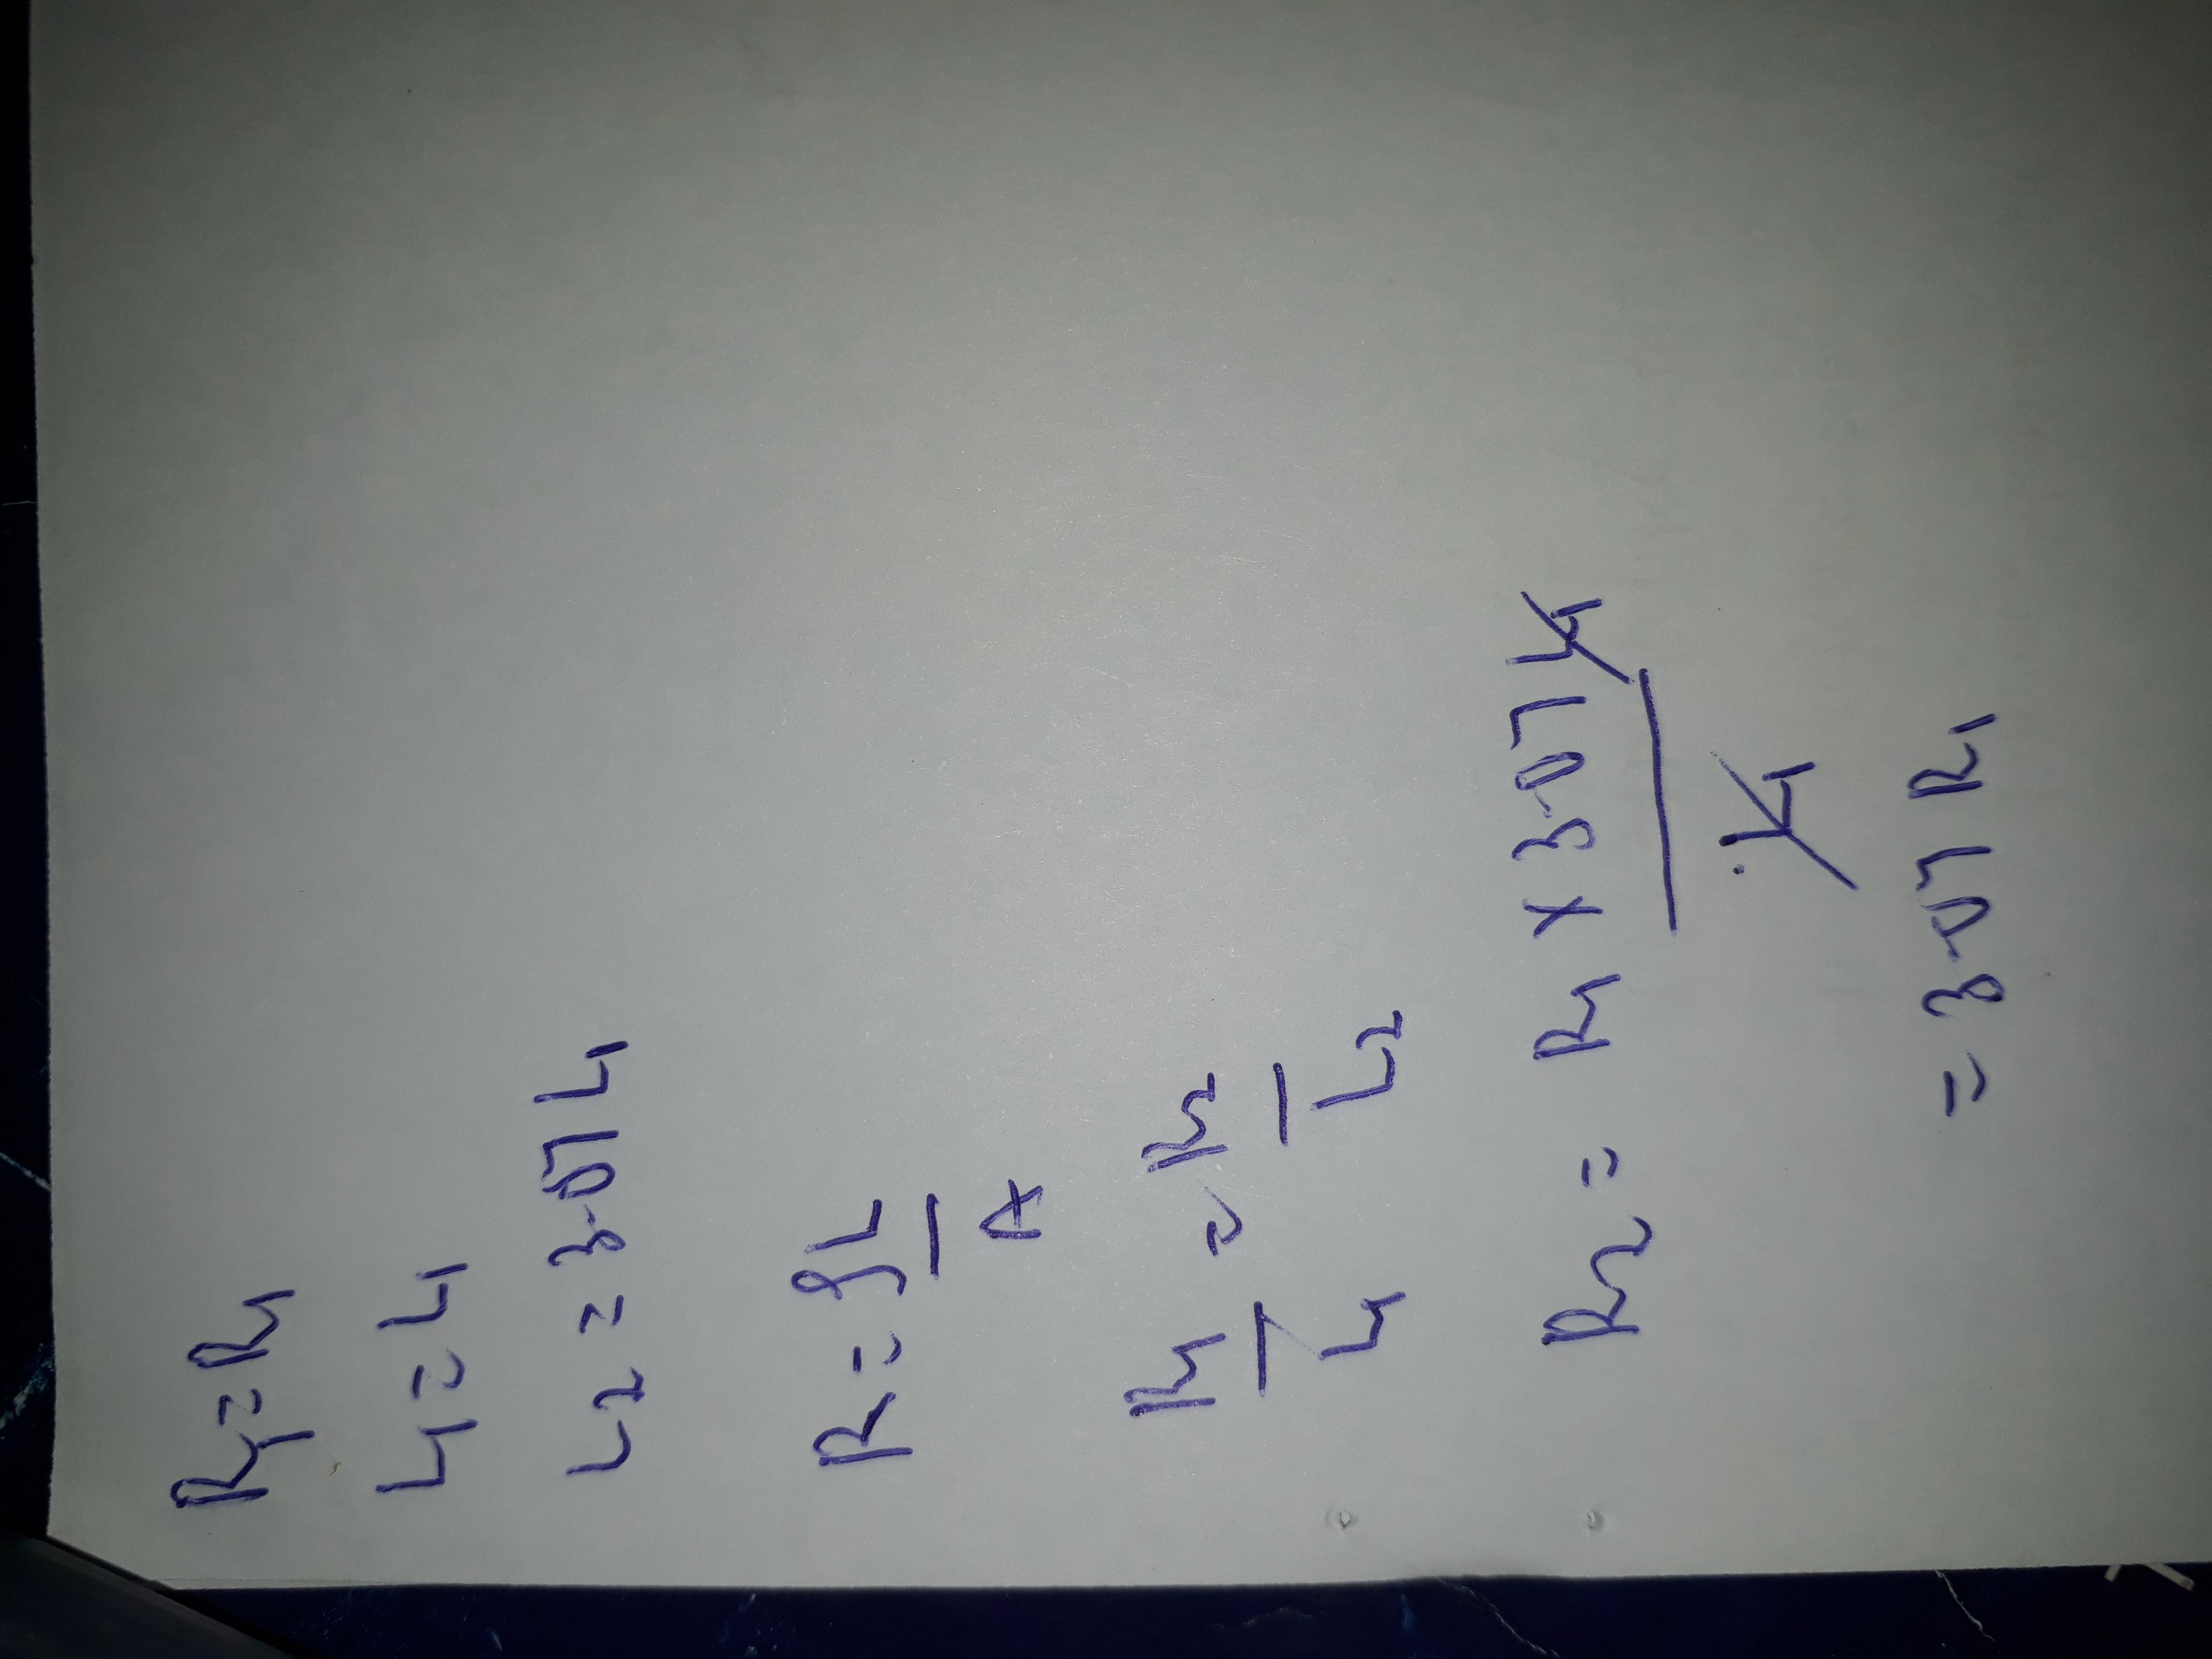 R₁ = R₁
L₁ = L₁
L₂ = 3.07 L₁
R = ρL
A
R₁ = R₂
L₁ L₂
R₂ = R₁ × 3.07 L₁
L₁
= 3.07 R₁